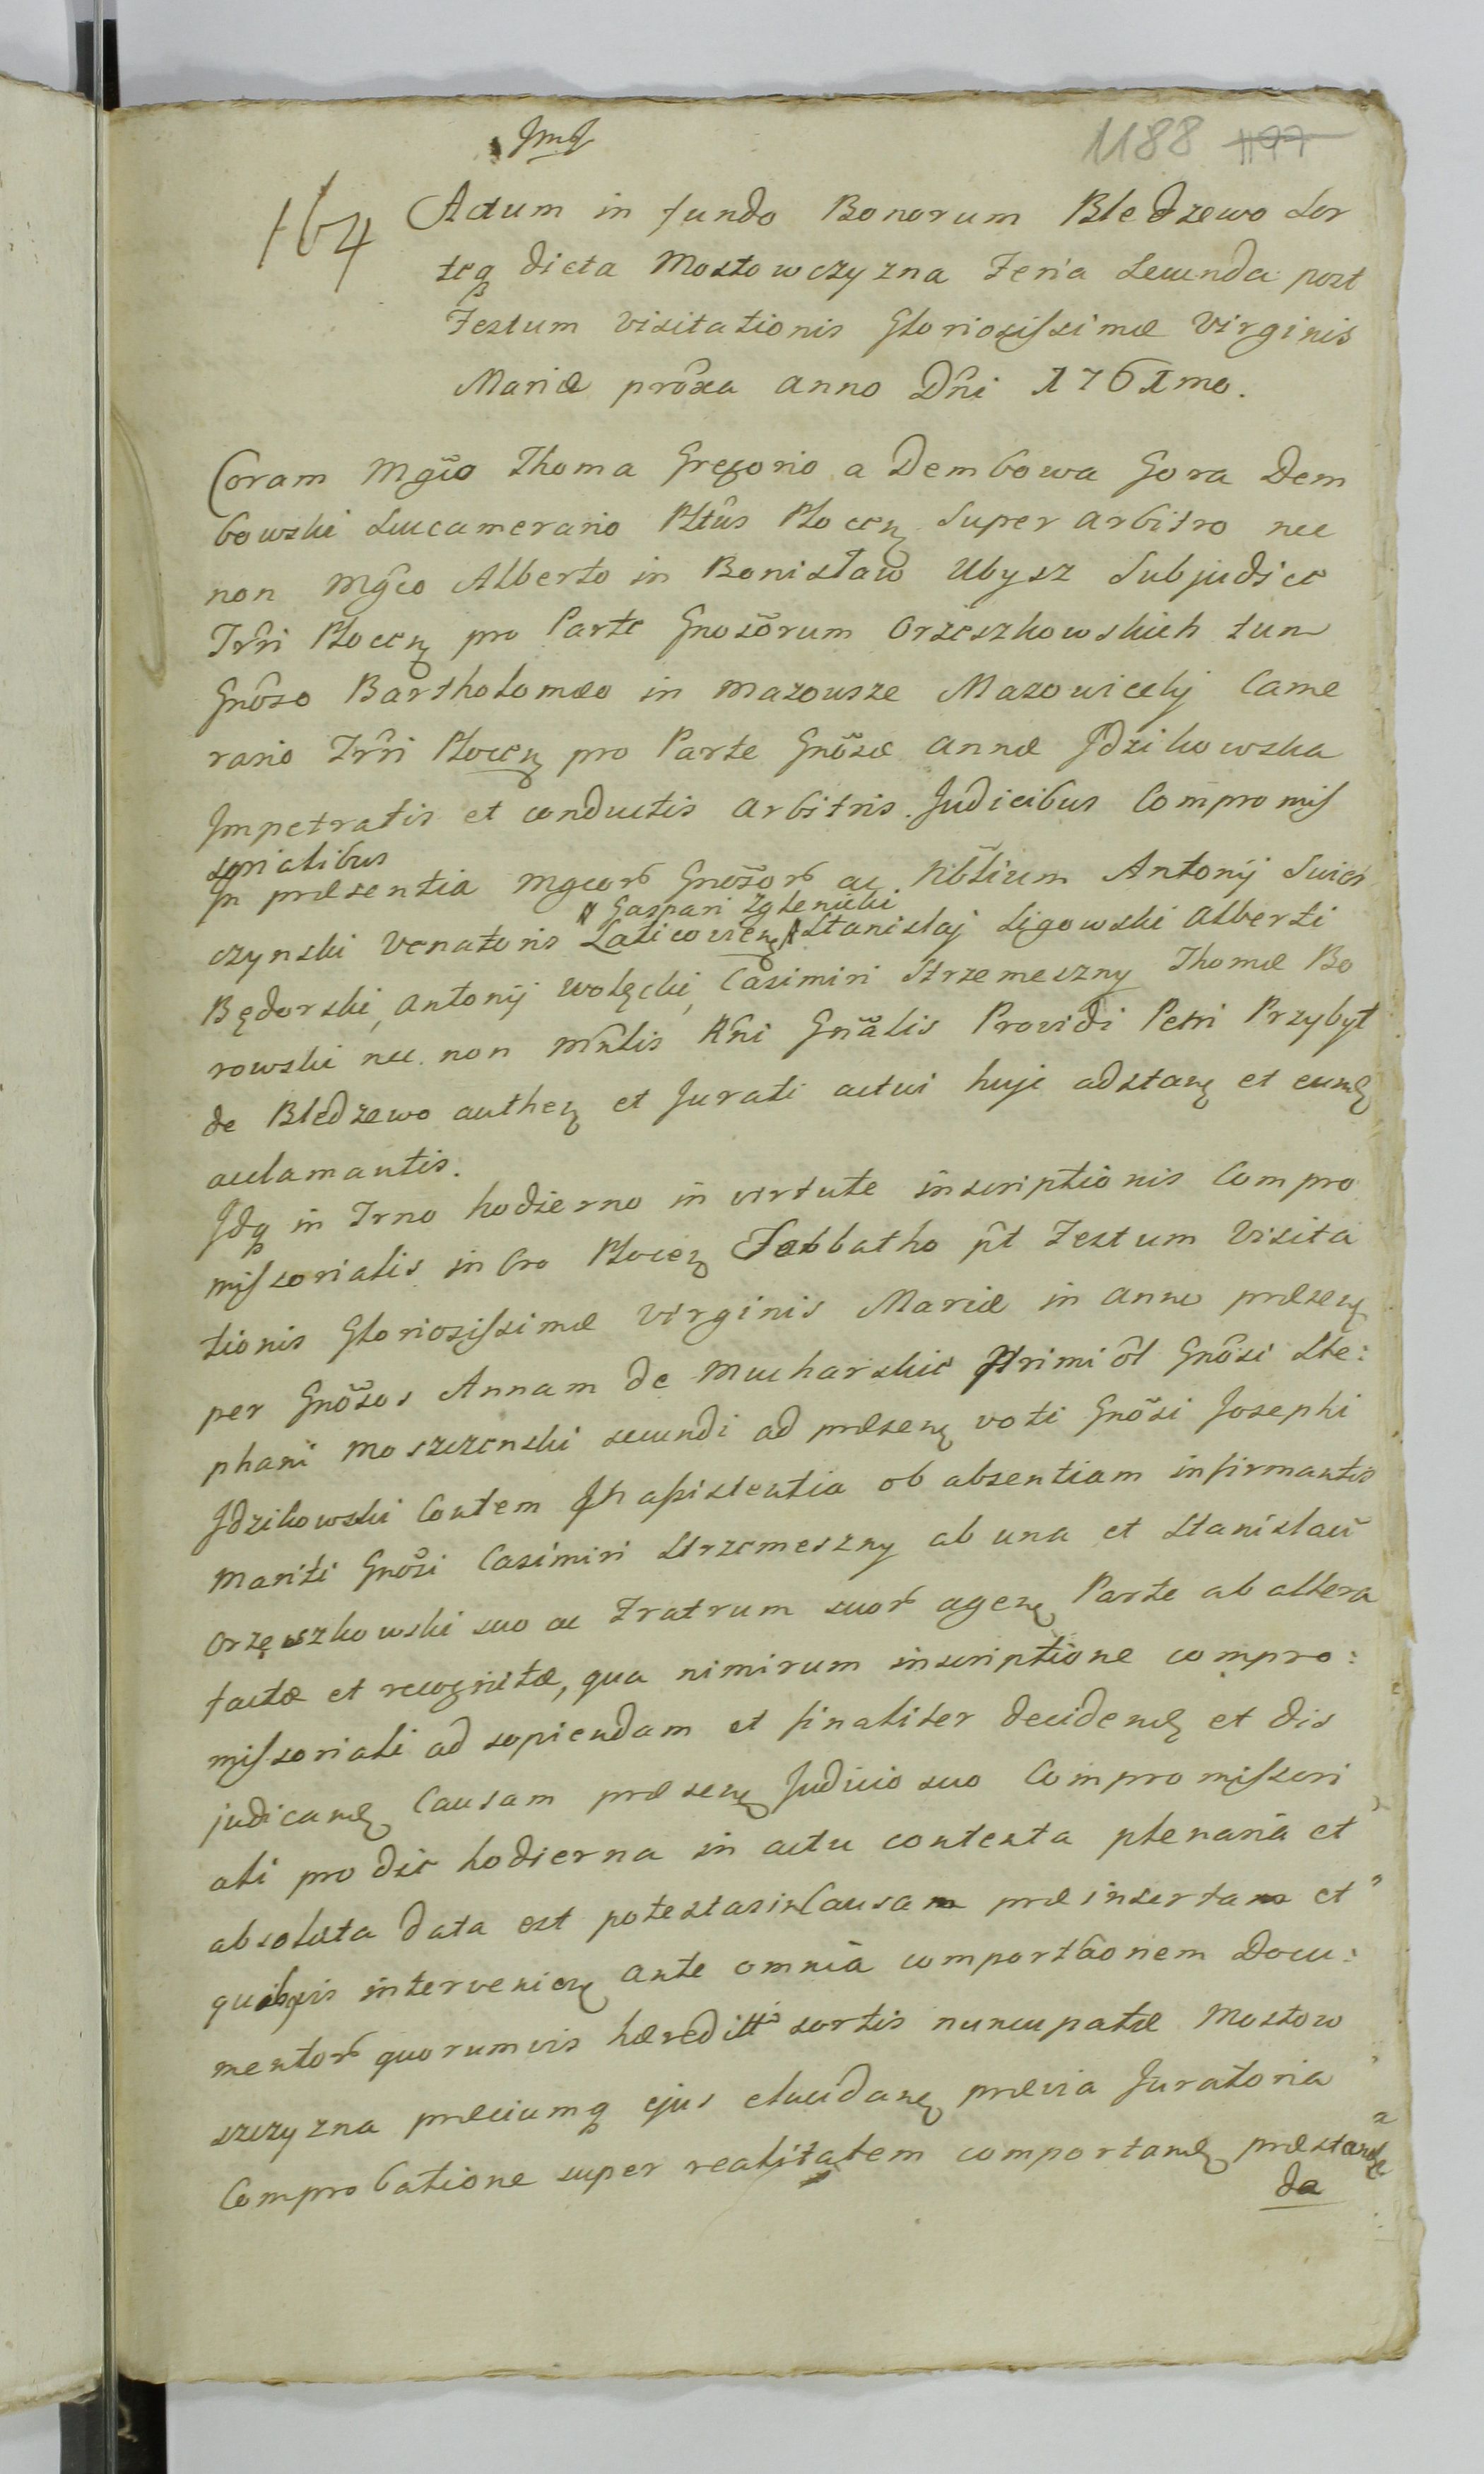 Jmj
1188 1197
164
Actum in fundo Bonorum Bledzewo Sor
teq dicta Mostowczyzna Feria Secunda post
Festum Visitationis Gloriosissimæ Virginis
Mariæ prôxa anno Dñi 1761mo.
Coram Mgco Thoma Gregorio a Dembowa Gora Dem
bowski Succamerario Pltûs Plocen Super arbitro nec
non Mgco Alberto in Bonisław Ubysz Subjudice
Trri Plocen pro Parte Gnosôrum Orzeszkowskich tum
Gnôso Bartholomæo in Mazowsze Mazowiecky Came
rario Trri Plocen pro Parte Gnôsæ Annæ Jdzikowska
Impetratis et conductis Arbitris Judicibus Compromis
sorialibus
In præsentia Mgcor Gnosor ac Nblium Antonij Swier
czynski Venatoris Laticovien Stanislaj Ligowski Alberti
Gaspari Zglenicki
Będorski, Antonij Wolęcki, Casimiri Strzemeszny Thomæ Bo
rowski nec non Mnlis Rni Gnâlis Providi Petri Przybył
de Bledzewo authen et Jurati actui huic adstan et eund
acclamantis.
Jdq in Trno hodierno in virtute inscriptionis Compro
missorialis in Cro Plocen Sabbatho pt Festum Visita
tionis Gloriosissimæ Virginis Mariæ in anno præsen
per Gnôsos Annam de Mucharskie Primi ôl Gnôsi Ste:
phani Moszczenski secundi ad præsen voti Gnôsi Josephi
Jdzikowski Contem In assistentia ob absentiam infirmantis
Mariti Gnôsi Casimiri Strzemeszny ab una et Stanislaû
Orzeszkowski suo ac Fratrum suor agen Parte ab altera
factæ et recognitæ, qua nimirum inscriptione compro:
missoriali ad sopiendam et finaliter decidend et dis
judicand Causam præsen Judicio suo Compromissori
ali pro die hodierna in actu contenta plenaria et
absoluta data est potestas in Causam præinsertam et
quibusvis intervenien ante omnia comportâonem Docu:
mentor quorumvis hæreditt sortis nuncupatæ Mostow
szczyzna præciumq ejus elucidan prævia Juratoria
Comprobatione super realitatem comportand præstan
da